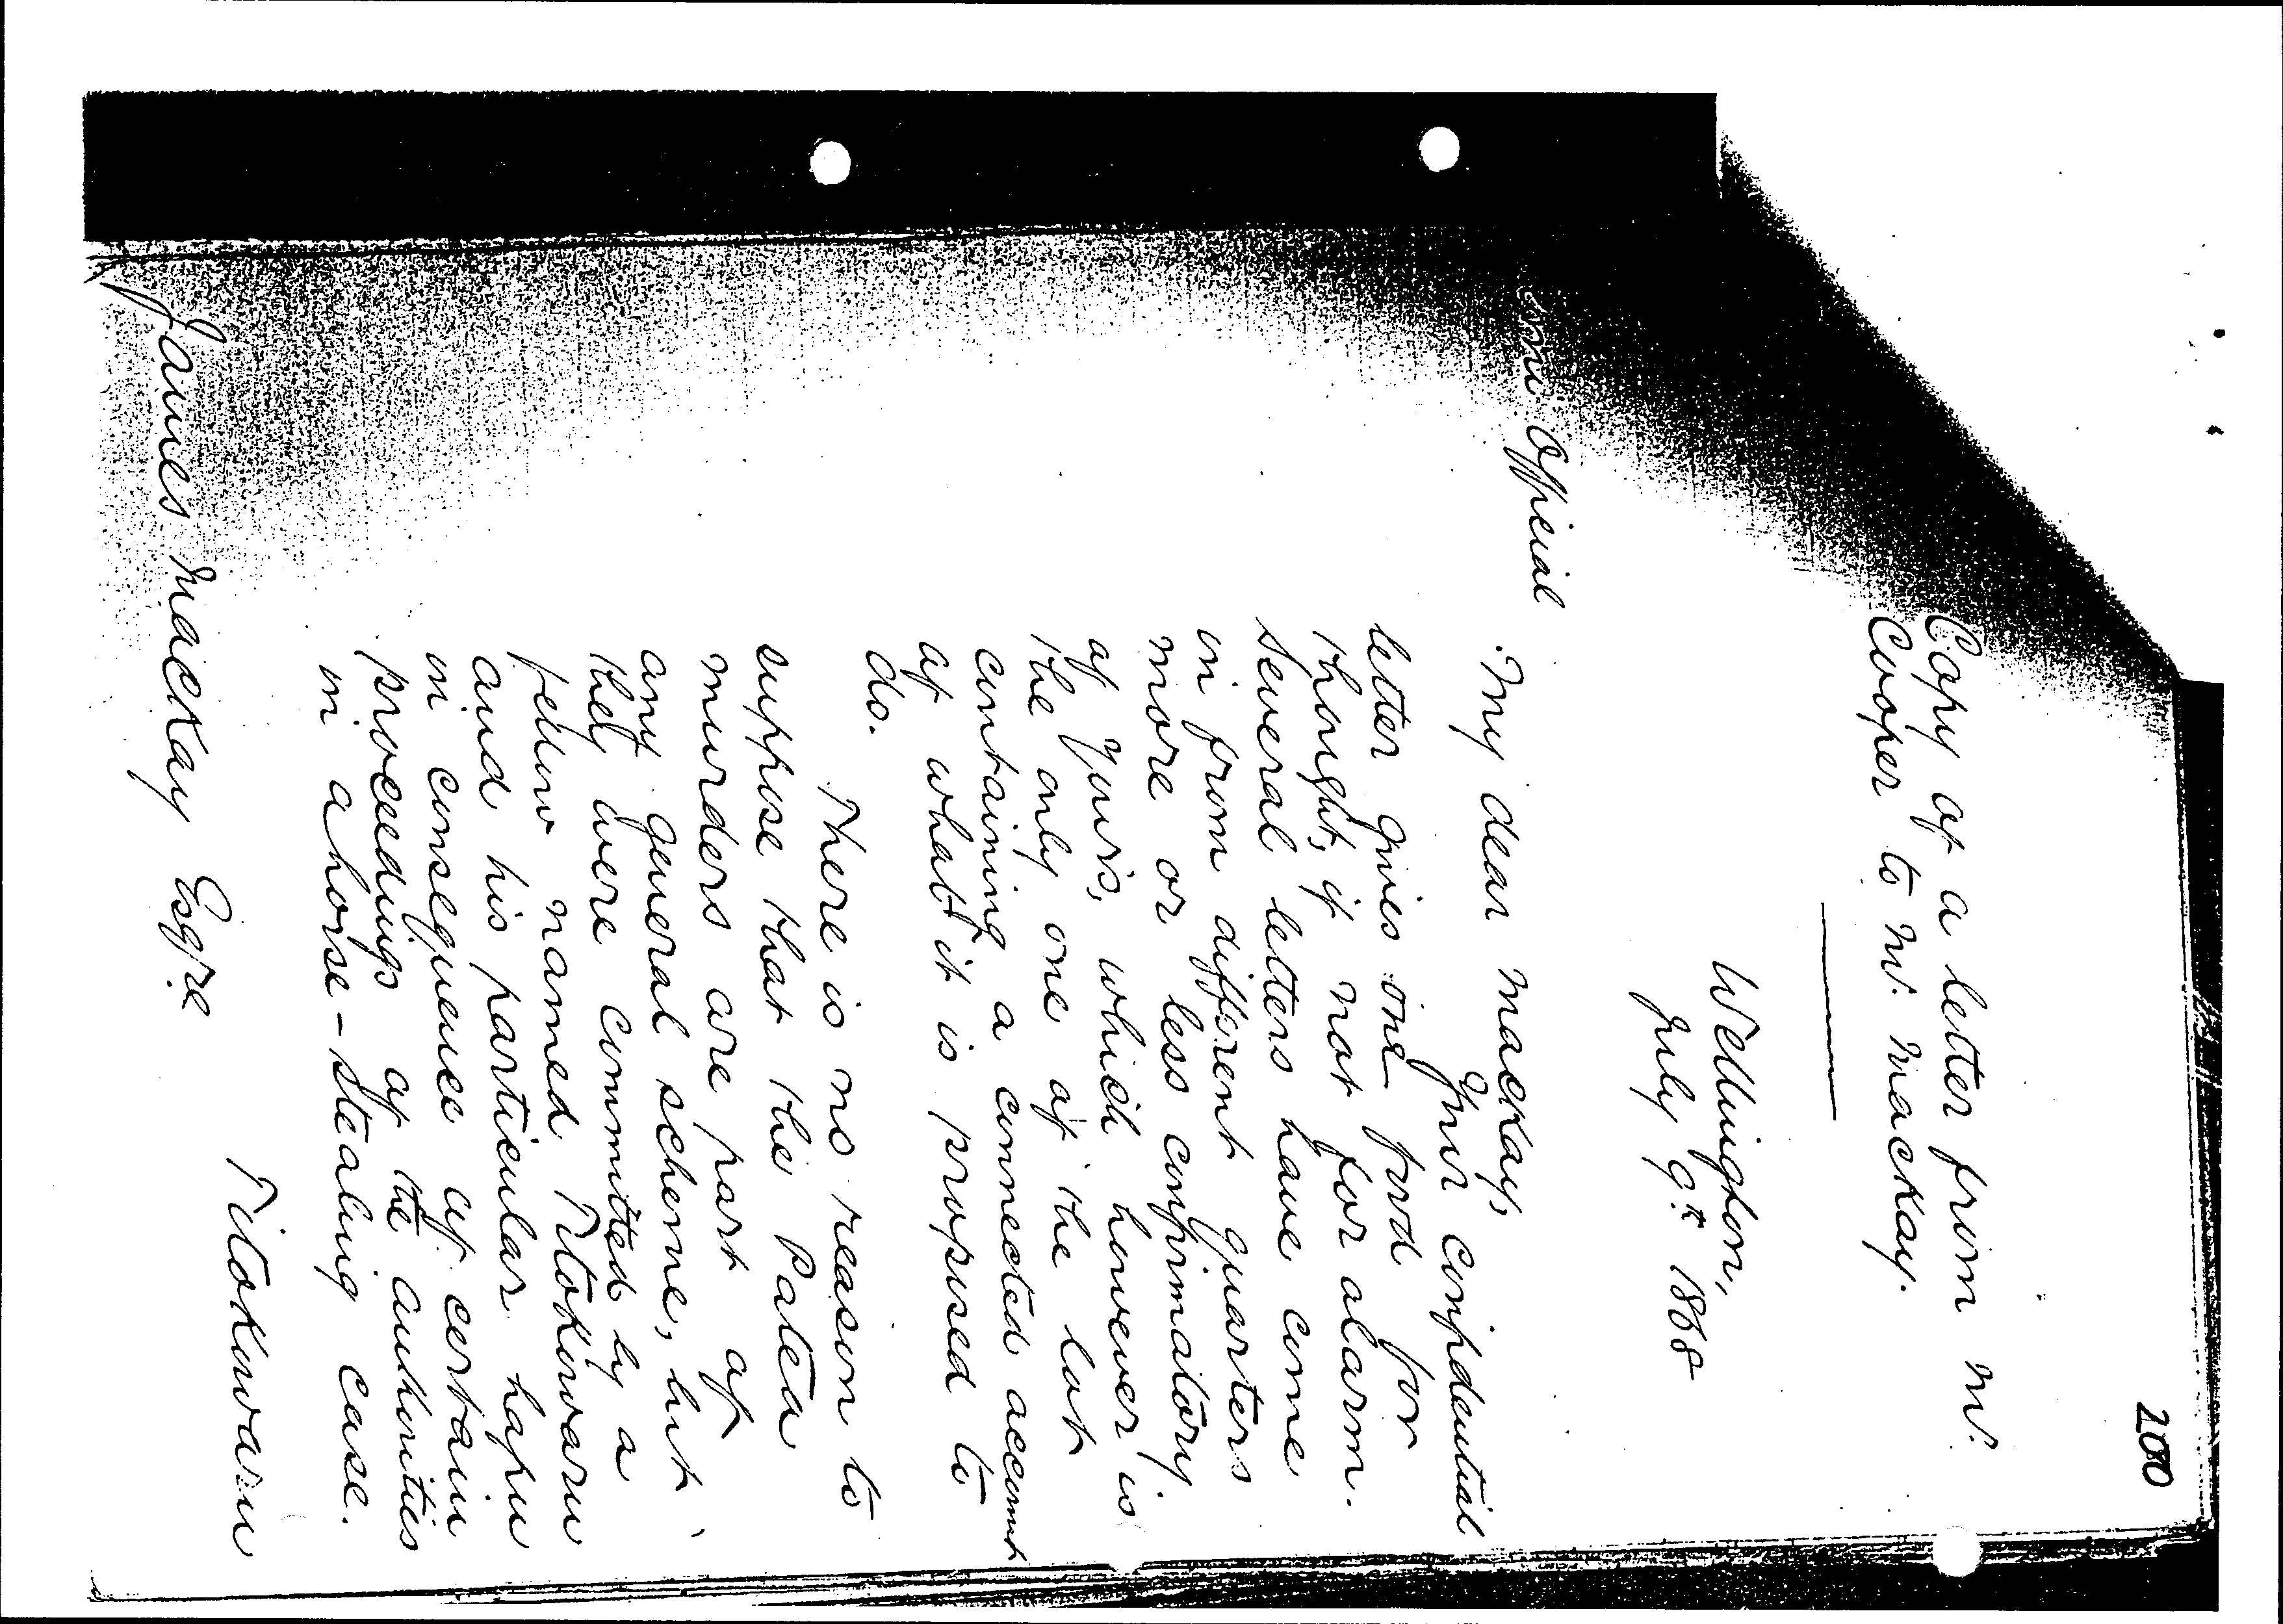 200
Copy of a letter from Mr.
Cooper to Mr. Mackay.
Wellington,
July 9th 1868
Official
My dear Mackay,
Your confidential
letter gives one food for
thought, if not for alarm.
Several letters have come
in from different quarters
more or less confirmatory
of yours, which however is
the only one of the lot
containing a connected account
of what it is proposed to
do.
There is no reason to
suppose that the Patea
murders are part of
any general scheme, but
they were committed by a
fellow named Titokowaru
and his particular hapu
in consequence of certain
proceedings of the authorities
in a horse-stealing case.
Titokowaru
James Mackay Esqre